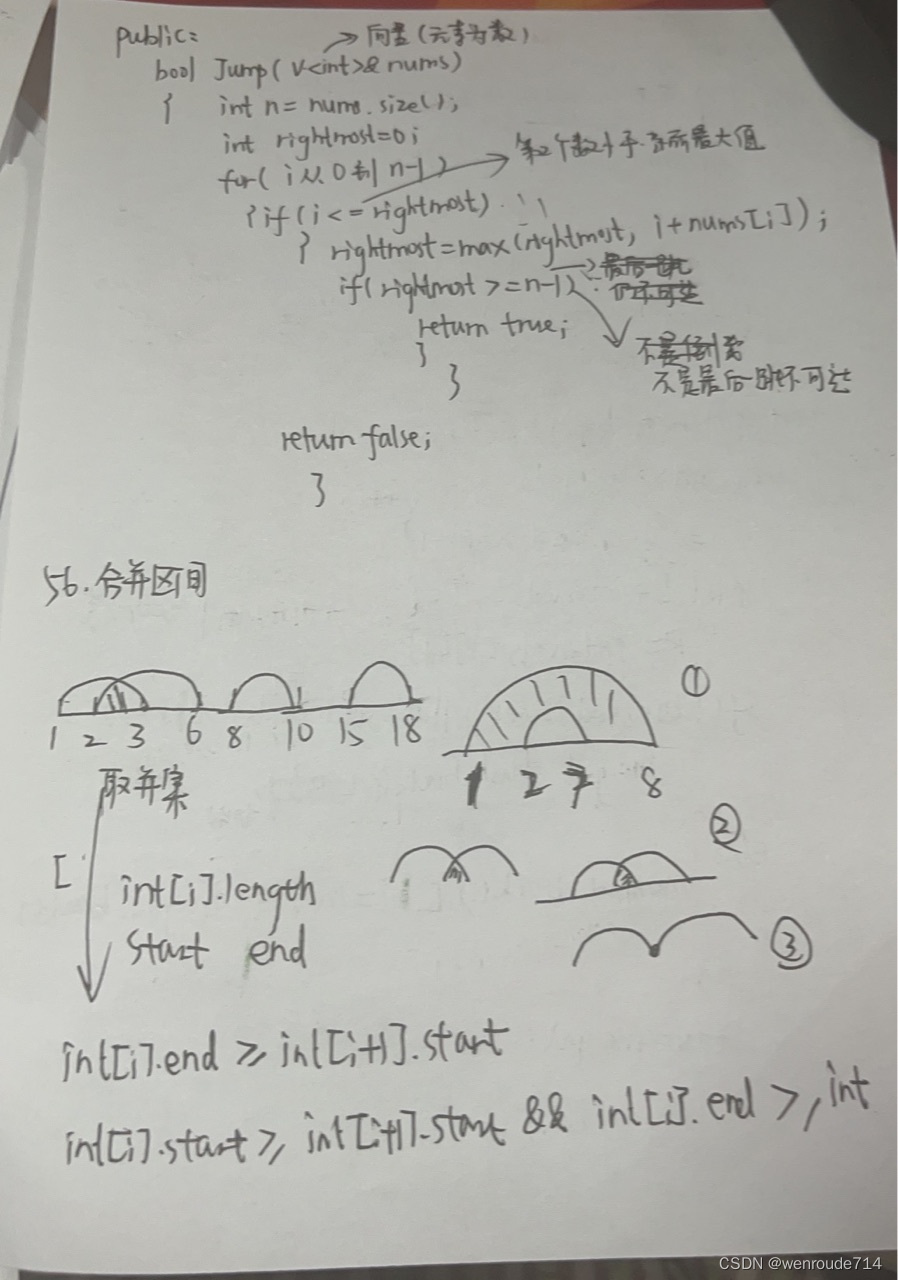 public:
→向量(元素为数)
bool Jump( v<int>& nums)
{ int n= nums.size();
int rightmost=0;
for( i从0到 n-1)
→ 第2个数
最大值
{if(i<=rightmost)
} rightmost=max(rightmost, i+nums[i]);
if(rightmost >=n-1)
return true;
不是最后一跳不可达
}
}
return false;
}
56.合并区间
1 2 3 6 8 10 15 18
①
1 2 7 8
取并集
②
[ int[i].length
start end
③
int[i].end ≥ int[i+1].start
int[i].start ≥ int[i+1].start && int[i].end ≥, int
CSDN @wenroude714